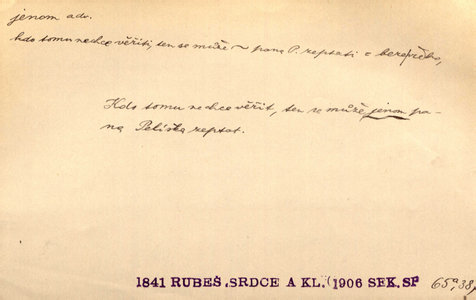 jenom adv.
kdo tomu nechce věřiti, ten se může ~ pana P. zeptati
Kdo tomu nechce věřit, ten se může jenom pa-
na Peliška zeptat.
1841 RUBEŠ, SRDCE A KL. (1906 SEK. SP